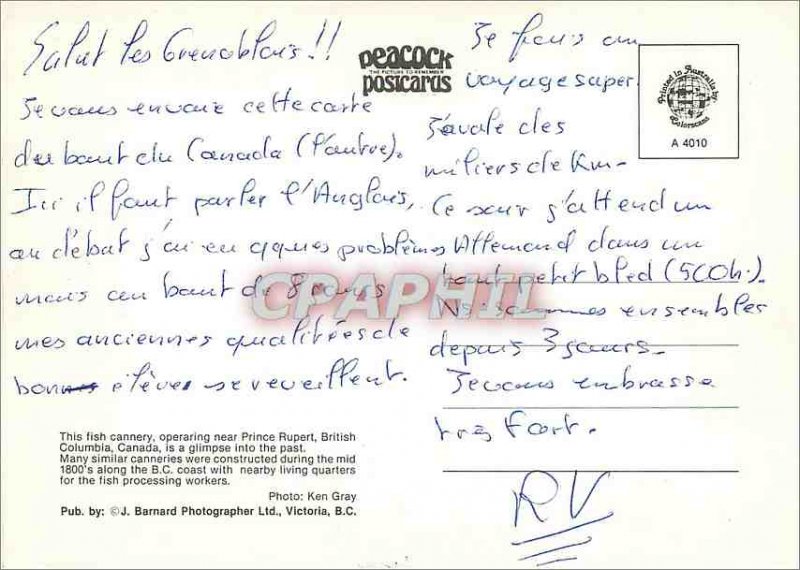 Salut les Grenoblois !!
Je vous envoie cette carte
du bout du Canada (l'autre).
Ici il faut parler l'Anglais,
au début j'ai eu qques problèmes
mais au bout de 8 jours
mes anciennes qualitées de
bon élève se reveillent.
This fish cannery, operaring near Prince Rupert, British
Columbia, Canada, is a glimpse into the past.
Many similar canneries were constructed during the mid
1800's along the B.C. coast with nearby living quarters
for the fish processing workers.
Photo: Ken Gray
Pub. by: © J. Barnard Photographer Ltd., Victoria, B.C.
peacock
THE PICTURE TO REMEMBER
postcards
Je fais un
voyage super.
J'avale des
miliers de Km.
Ce soir j'attend un
Allemand dans un
tout petit bled (500h.).
Ns sommes ensembles
depuis 3 jours.
Je vous embrasse
très fort.
RV
Printed in Australia by
Colorscans
A 4010
CPAPHIL